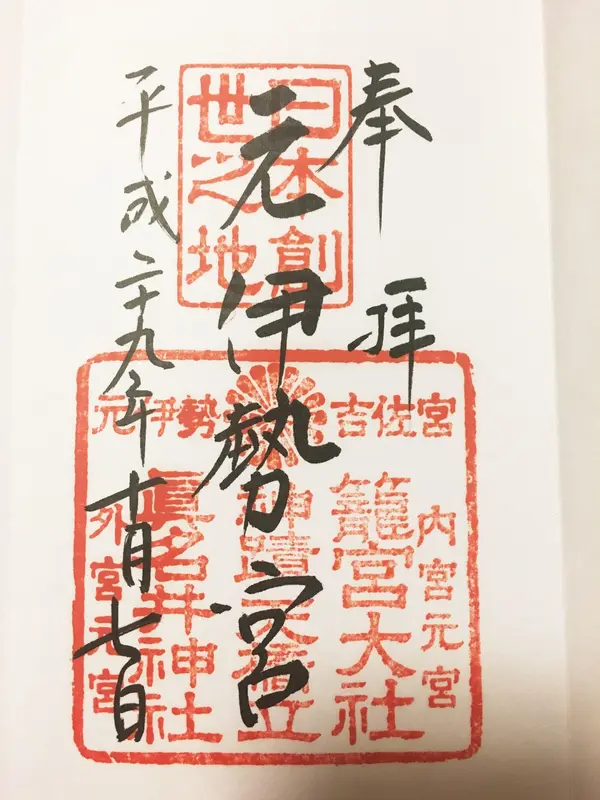 奉拝
日本創
世之地
元伊勢宮
平成二十九年十月七日
元伊勢 吉佐宮
内宮元宮
籠宮大社
神蹟天橋立
眞名井神社
外宮元宮